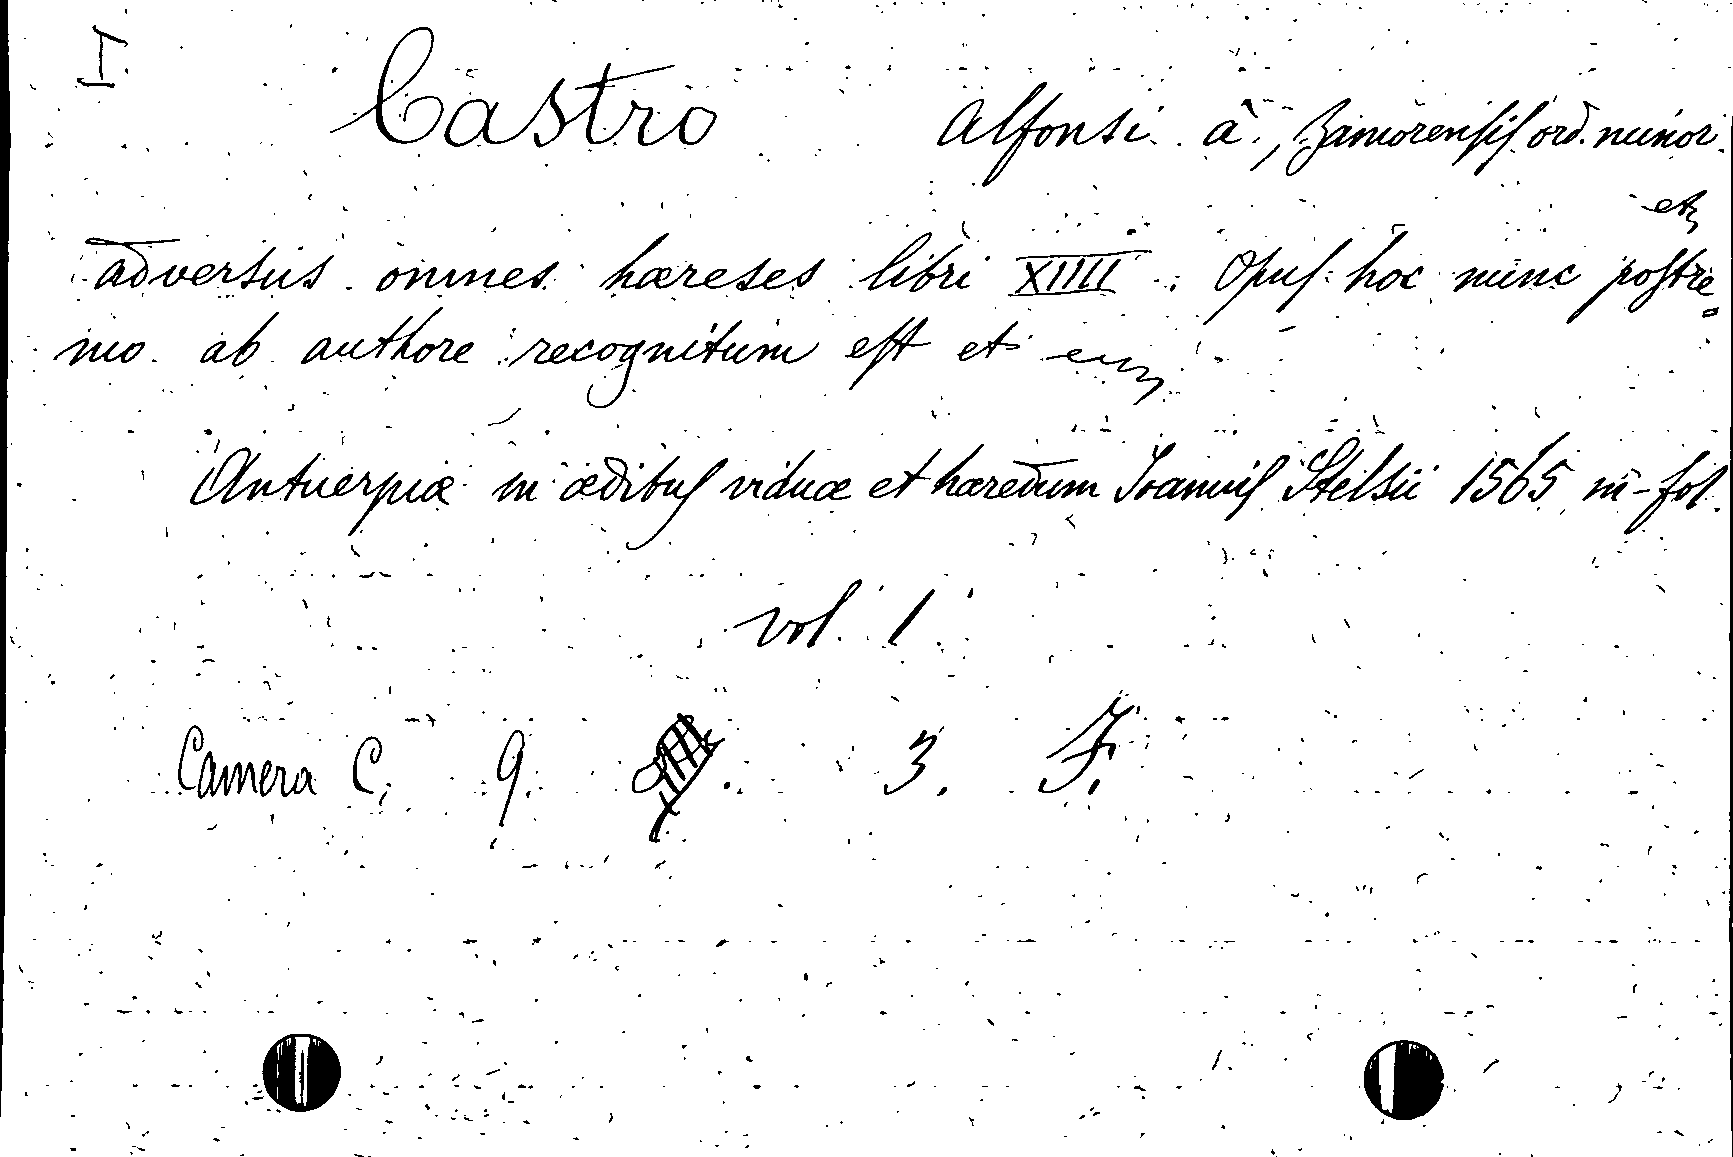 I.
Castro Alfonsi à, Zamorensis ord. minor.
etc
adversus omnes hæreses libri XIIII. Opus hoc nunc postre=
mo ab authore recognitum est et
Antuerpiæ in ædibus viduæ et hæredum Ioannis Stelsii 1565 in-fol.
vol. 1
Camera C, 9. 3. F.